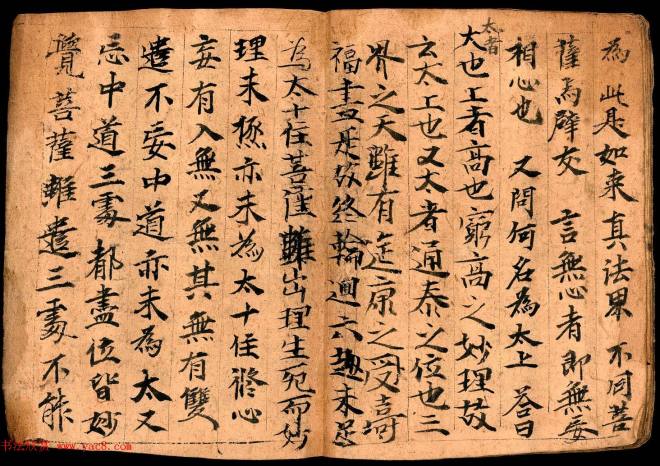 為此是如来真法界不同菩
薩為辟支 言無心者即無妄
相心也 又問何名為太上 荅曰
太者
大也上者高也窮高之妙理故
云太上也又太者通泰之位也三
界之天雖有延康之受壽
福盡是故終輪迴六趣未足
為太十住菩薩雖出理生死而妙
理未極亦未為太十住修心
妄有入無又無其無有雙
遣不妄中道亦未為太又
忘中道三處都盡位皆妙
覺菩薩雖遣三處不能
书法欣赏 www.yac8.com